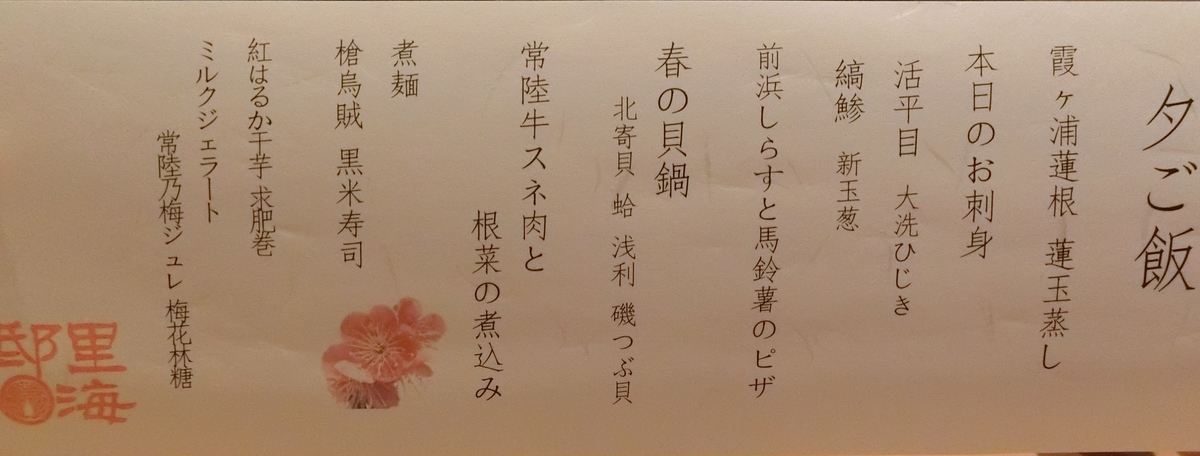 夕ご飯
霞ヶ浦蓮根 蓮玉蒸し
本日のお刺身
活平目 大洗ひじき
縞鯵 新玉葱
前浜しらすと馬鈴薯のピザ
春の貝鍋
北寄貝 蛤 浅利 磯つぶ貝
常陸牛スネ肉と
根菜の煮込み
煮麺
槍烏賊 黒米寿司
紅はるか干芋 求肥巻
ミルクジェラート
常陸乃梅ジュレ 梅花林糖
里海
邸